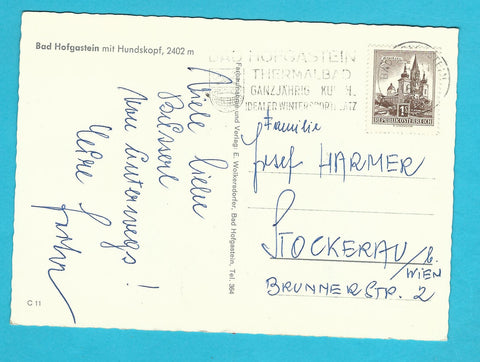 Bad Hofgastein mit Hundskopf, 2402 m
Viele liebe
Busserl
von unterwegs!
C 11
Farbaufnahme und Verlag: E. Wolkersdorfer, Bad Hofgastein, Tel. 364
BAD HOFGASTEIN
THERMALBAD
GANZJÄHRIG KUR
IDEALER WINTERSPORTPLATZ
1S
REPUBLIK ÖSTERREICH
Familie
Josef HARMER
STOCKERAU/b.
WIEN
BRUNNERSTR. 2